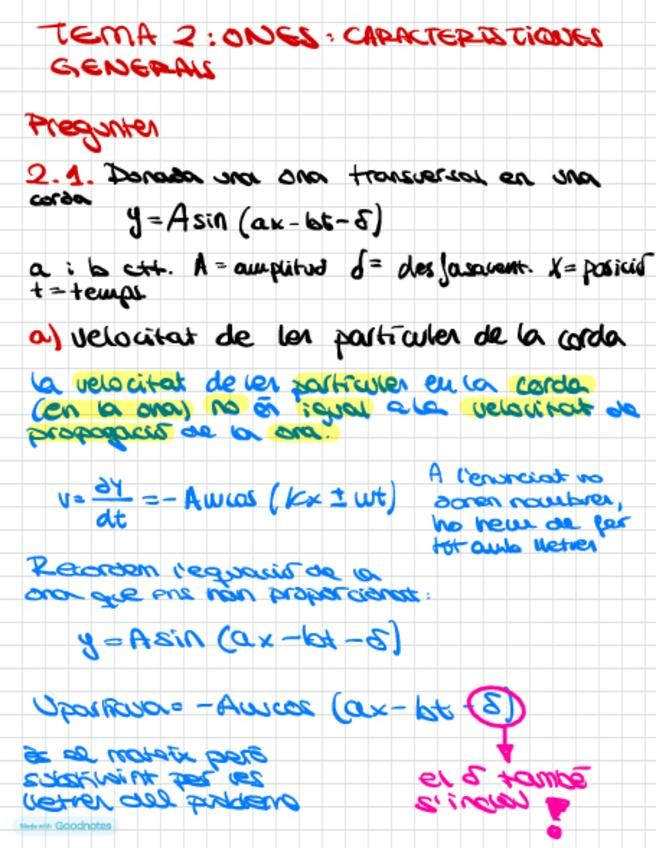 TEMA 2: ONES: CARACTERÍSTIQUES
GENERALS
Preguntes
2.1. Donada una ona transversal en una
corda
y=Asin (ax-bt-δ)
a i b ctt. A=amplitud δ= desfasament. x=posició
t=temps
a) velocitat de les partícules de la corda
La velocitat de les partícules en la corda
(en la ona) no és igual a la velocitat de
propagació de la ona.
v= ∂y/dt =-Aωcos (kx ± ωt)
A l'enunciat no
donen nombres,
ho hem de fer
tot amb lletres
Recordem l'equació de la
ona que ens han proporcionat:
y=Asin (ax-bt-δ)
= -Aωcos (ax-bt-δ)
és el mateix però
substituint per les
lletres del problema
el δ també
s'inclou !
Made with Goodnotes